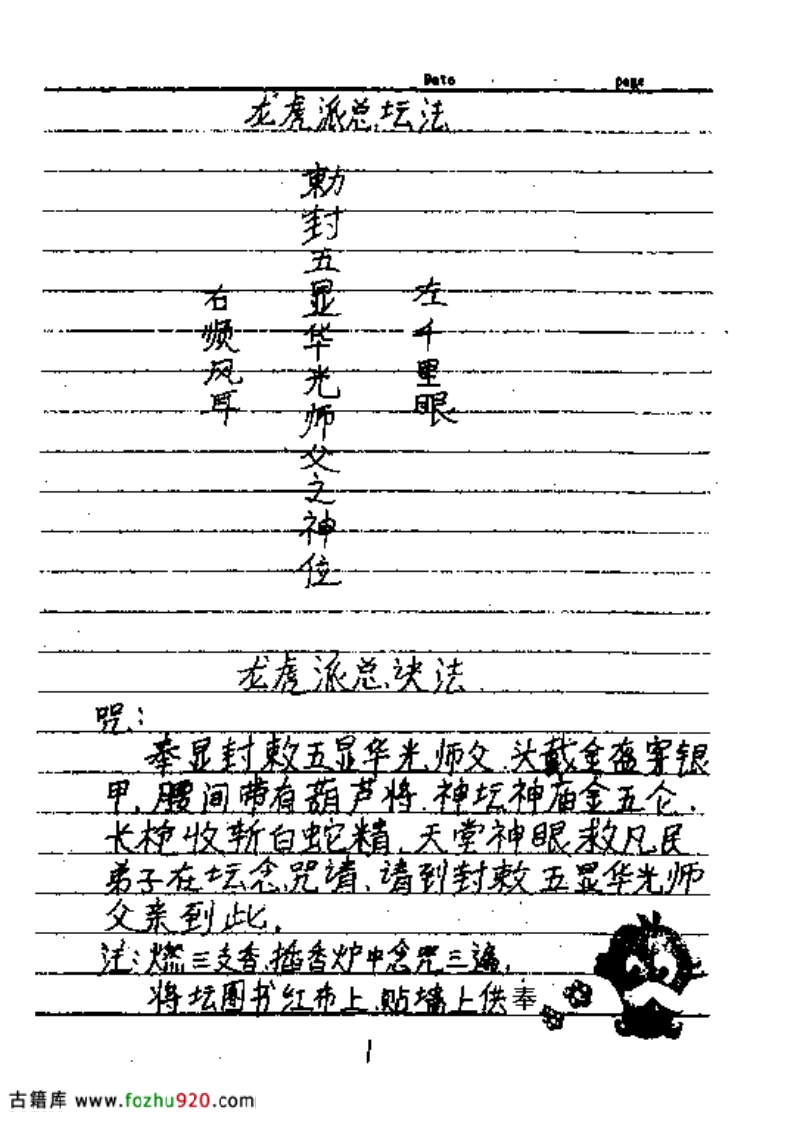 Date page
龙虎派总坛法
左千里眼
勅封五显华光师父之神位
右顺风耳
龙虎派总诀法
咒：
奉显封敕五显华光师父.头戴金盔穿银
甲.腰间带有葫芦将.神坛神庙金五仑.
长枪收斩白蛇精.天堂神眼救凡民
弟子在坛念咒請、請到封敕五显华光师
父亲到此.
注：燃三支香.插香炉中念咒三遍.
将坛图书红布上.贴墙上供奉
1
古籍库 www.fozhu920.com